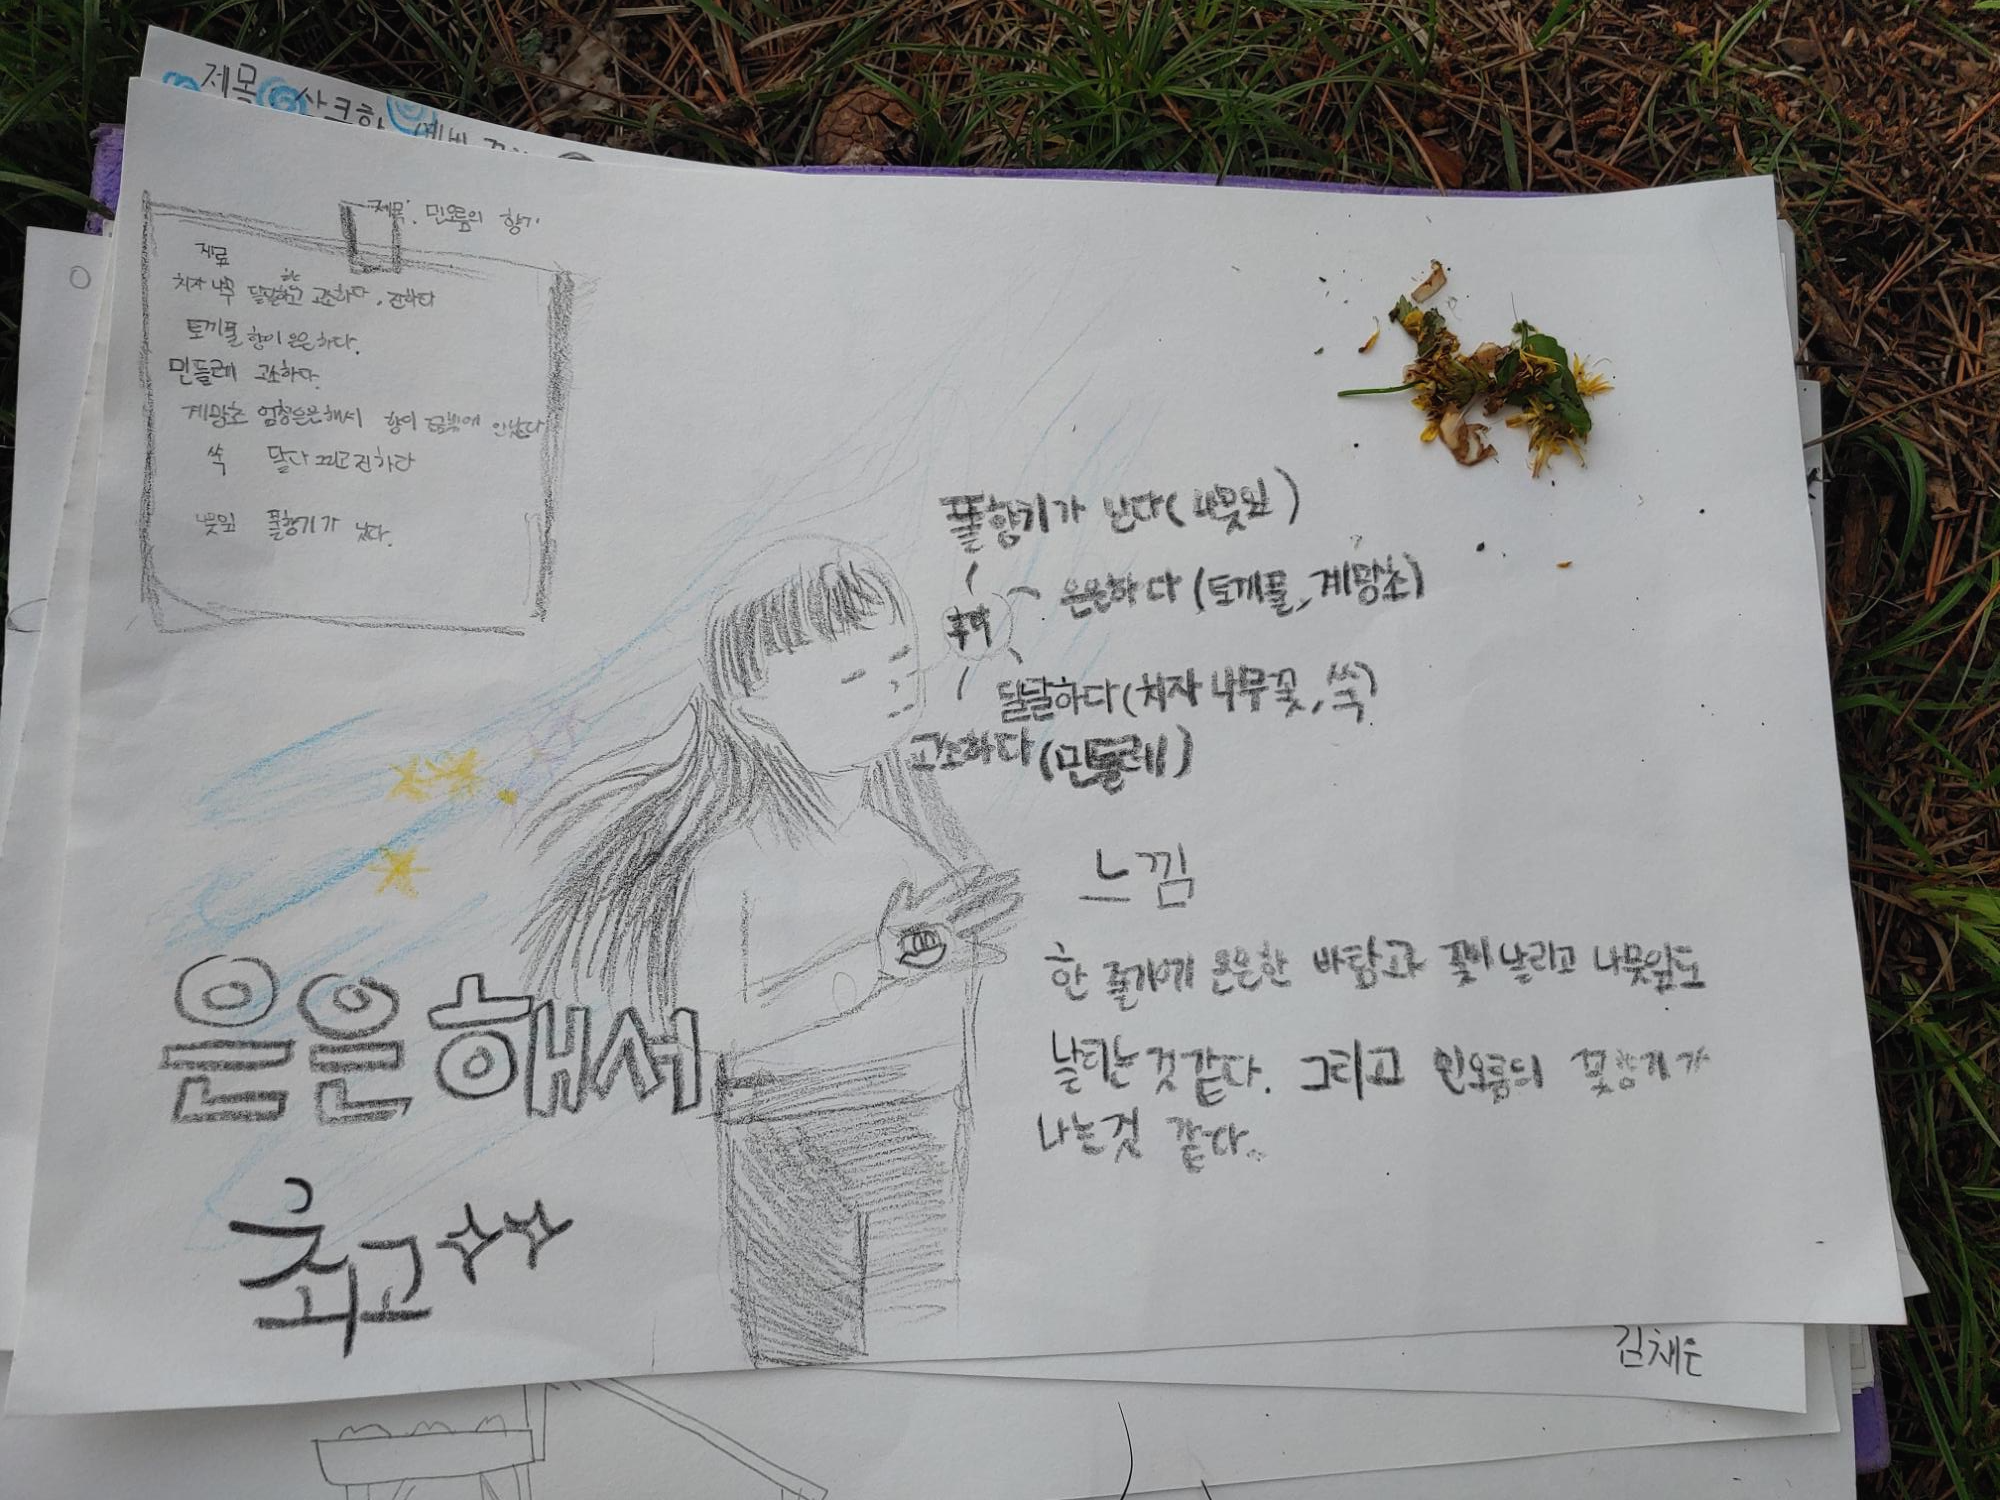 제목
제목: 민오름의 향기
재료
치자 나무 달달하고 고소하다. 진하다
토끼풀 향이 은은하다.
민들레 고소하다.
계망초 엄청은은해서 향이 안났다
쑥 달다 찐하다
나뭇잎 풀향기가 났다.
풀향기가 난다(나뭇잎)
은은하다(토끼풀, 계망초)
달달하다(치자 나무 꽃, 쑥)
고소하다(민들레)
느낌
한 줄기에 은은한 바람과 꽃이 날리고 나뭇잎도
날리는 것 같다. 그리고 민오름의 꽃향기가
나는것 같다..
은은해서
최고